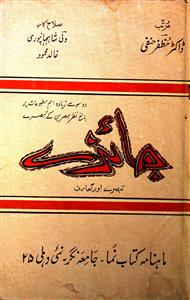 مرتب
ڈاکٹر مظفر حنفی
صلاح کار
ولی شاہجہانپوری
خالد محمود
دو سو سے زیادہ اہم مطبوعات پر
بالغ نظر مبصرین کے تبصرے
جائزے
تبصرے اور تعارف
ماہنامہ کتاب نما۔ جامعہ نگر۔ نئی دہلی ۲۵